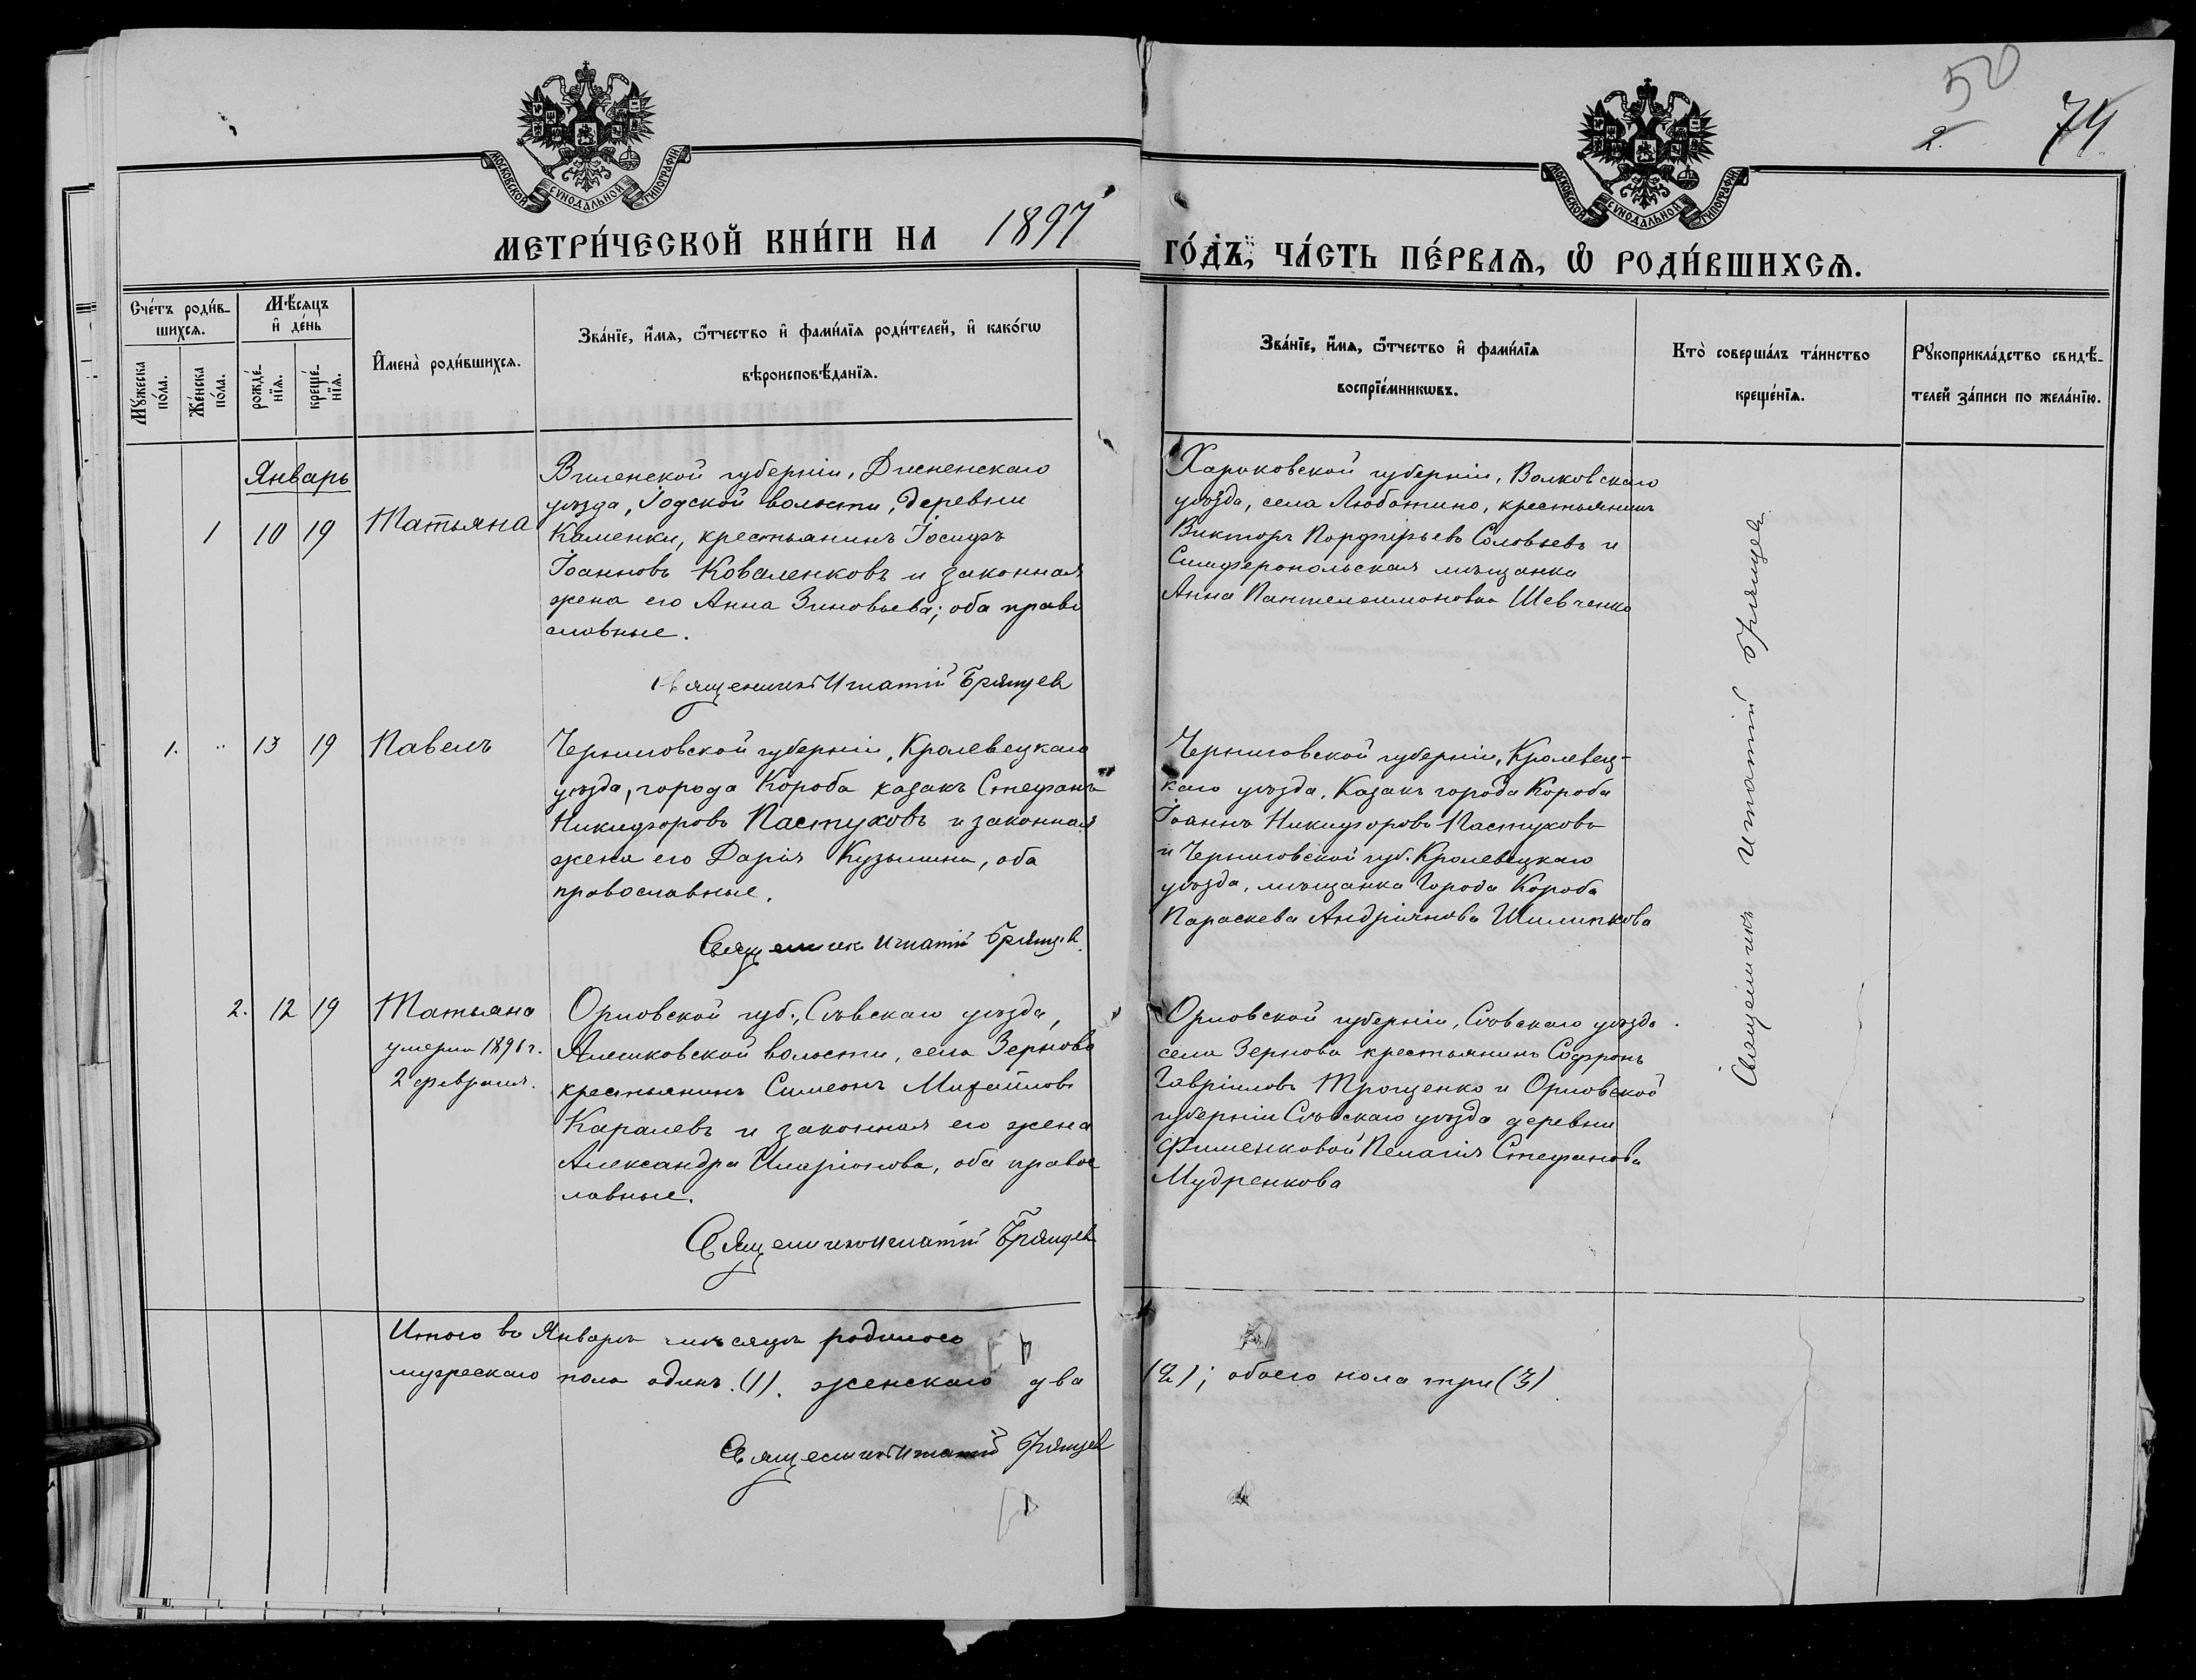 50
2.
74
МОСКОВСКОЙ СУНОДАЛЬНОЙ ТИПОГРАФІИ.
МОСКОВСКОЙ СУНОДАЛЬНОЙ ТИПОГРАФІИ.
МЕТРИ́ЧЕСКОЙ КНИ́ГИ НА 1897
ГО́ДЪ, ЧА́СТЬ ПЕ́РВАѦ, Ѡ РОДИ́ВШИХСѦ.
Сче́тъ роди́в-
шихсѧ.
Мꙋжеска по́ла.
Же́нска по́ла.
Мѣ́сѧцъ
и҆ де́нь
рожде́-
нїѧ.
креще́-
нїѧ.
И҆мена̀ роди́вшихсѧ.
Зва́нїе, и҆́мѧ, ѻ҆́тчество и҆ фами́лїѧ роди́телей, и҆ како́гѡ
вѣроисповѣ́данїѧ.
Зва́нїе, и҆́мѧ, ѻ҆́тчество и҆ фами́лїѧ
воспрїе́мникѡвъ.
Кто̀ соверша́лъ та́инство
креще́нїѧ.
Рꙋкоприкла́дство свидѣ́-
телей за́писи по жела́нїю.
Январь
1 10 19 Татьяна
Виленской губерніи, Дисненскаго
уѣзда, Іодской волости, деревни
Каменки, крестьянинъ Іосифъ
Іоанновъ Коваленковъ и законная
жена его Анна Зиновьева; оба право
славные.
Священникъ Игнатій Брянцев
Харьковской губерніи, Валковскаго
уѣзда, села Люботино, крестьянинъ
Викторъ Порфирьевъ Соловьевъ и
Симферопольская мѣщанка
Анна Пантелеимоновна Шевченко
1. .. 13 19 Павелъ
Черниговской губерніи, Кролевецкаго
уѣзда, города Короба казакъ Стефанъ
Никифоровъ Пастуховъ и законная
жена его Дарія Кузьмина, оба
православные.
Священник Игнатій Брянцев.
Черниговской губерніи, Кролевец-
каго уѣзда, Казакъ города Короба
Іоаннъ Никифоровъ Пастуховъ
и Черниговской губ. Кролевецкаго
уѣзда, мѣщанка города Короба
Параскева Андріянова Шилипкова
2. 12 19 Татьяна
умерла 189 г.
2 февраля.
Орловской губ., Сѣвскаго уѣзда,
волости, села Зернова
крестьянинъ Симеонъ Михайловъ
Каралевъ и законная его жена
Александра Иларіонова, оба правос
лавные.
Священникъ Игнатій Брянцев
Орловской губерніи, Сѣвскаго уѣзда
села Зернова крестьянинъ Софронъ
Гавріиловъ Трощенко и Орловской
губерніи Сѣвскаго уѣзда деревни
Филенковой Пелагія Стефанова
Мудренкова
Священникъ Игнатій Брянцев
Итого въ Январѣ мѣсяцѣ родилось
мужескаго пола одинъ. (1). женскаго два
(2); обоего пола три (3)
Священникъ Игнатій Брянцев